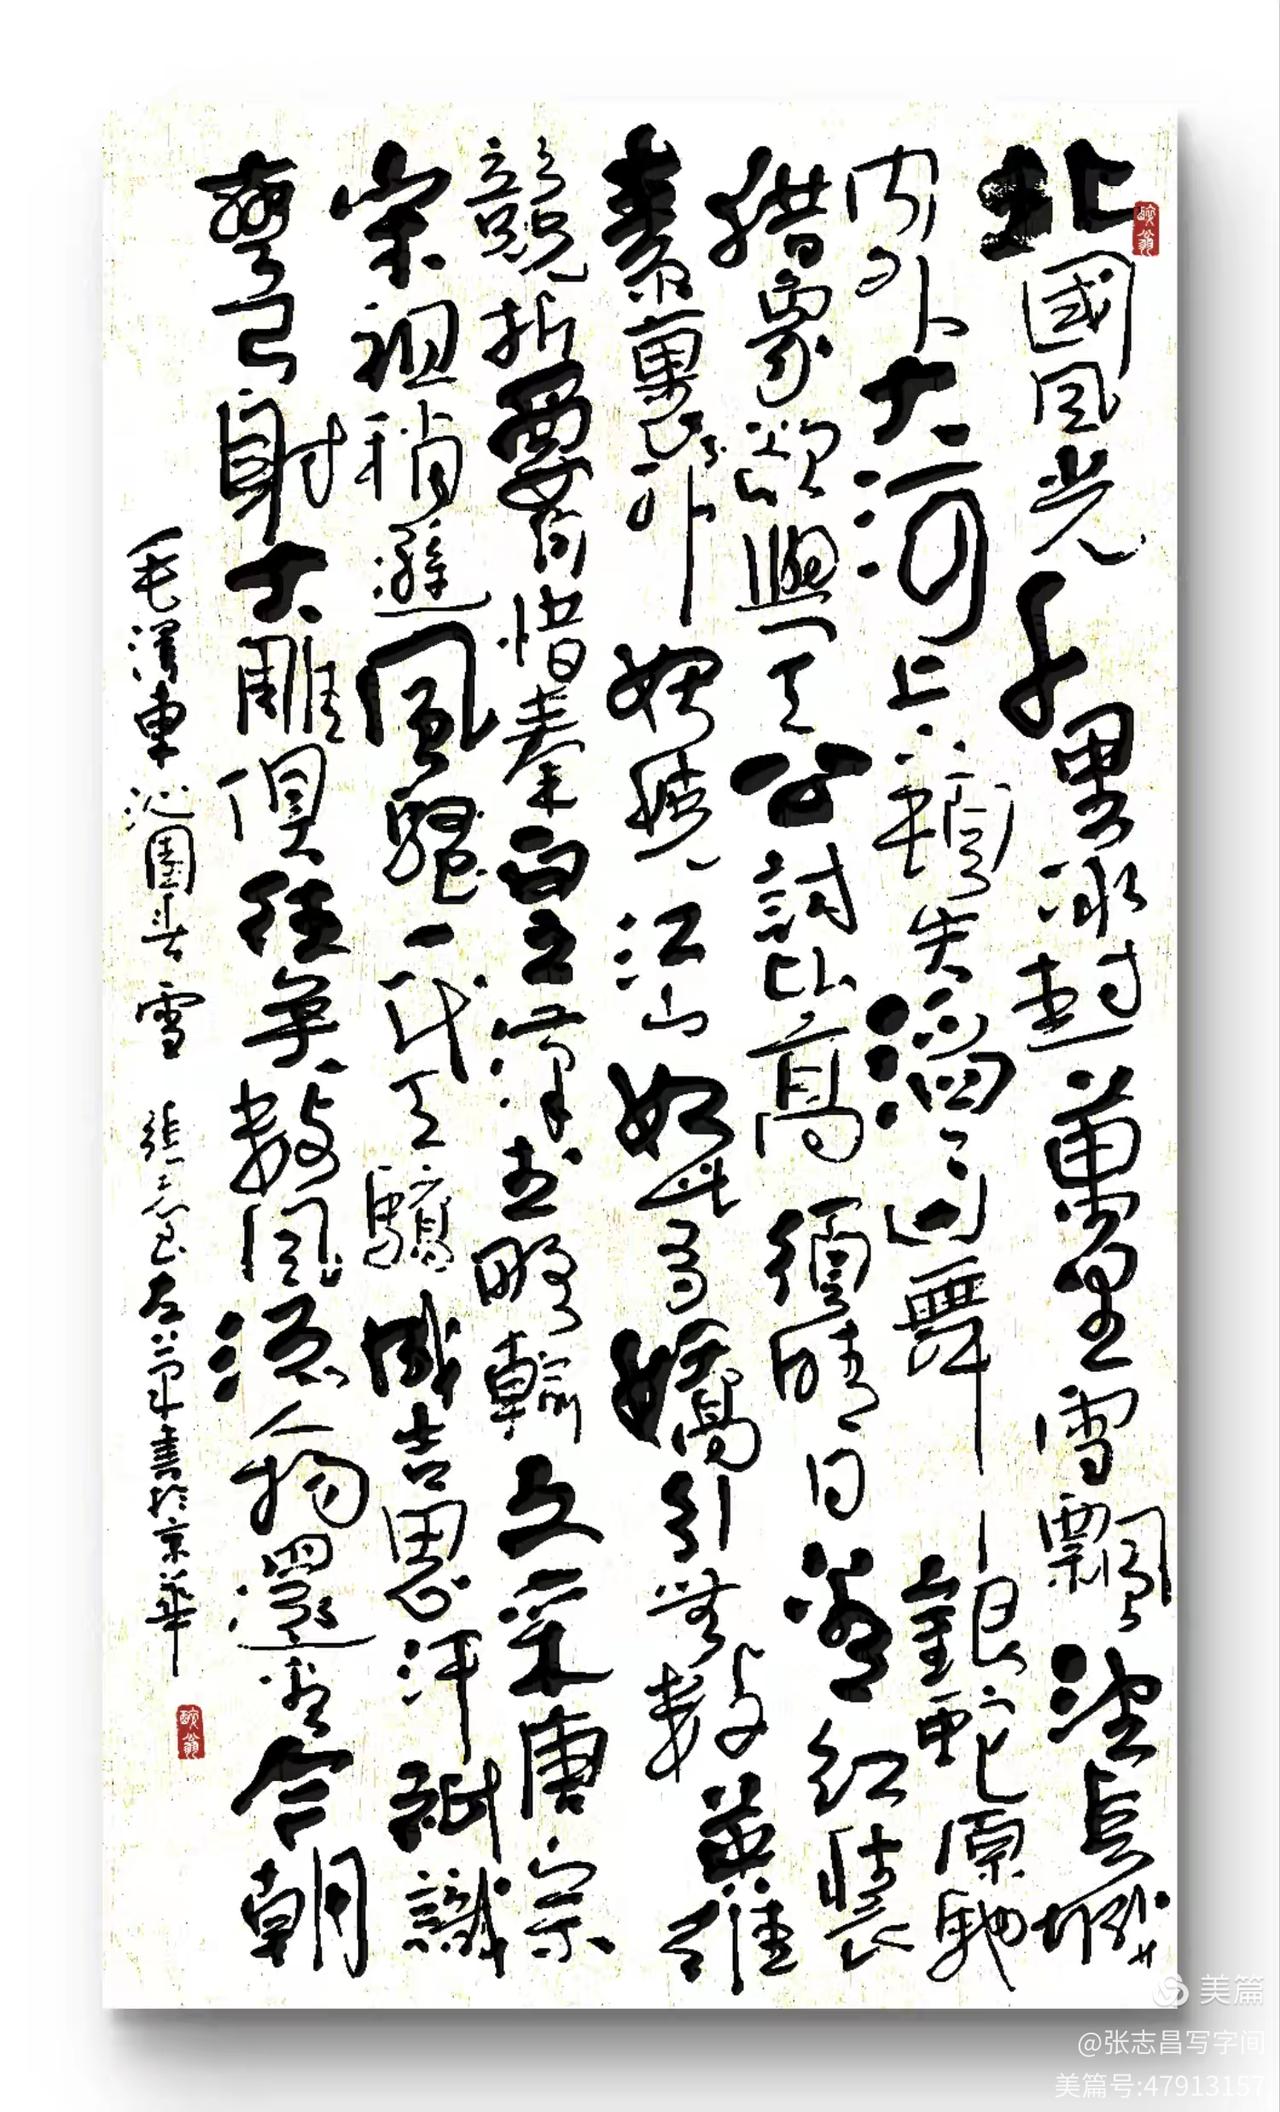 北國風光千里冰封萬里雪飄望長城
内外大河上下頓失滔滔山舞銀蛇原馳
蜡象欲與天公試比高須晴日看紅裝
素裹分外妖嬈江山如此多嬌引無數英雄
競折腰惜秦皇漢武略輸文采唐宗
宋祖稍遜風騷一代天驕成吉思汗祇識
彎弓射大雕俱往矣數風流人物還看今朝
毛澤東沁園春雪 張志昌左筆書於京華
美篇
@张志昌写字间
美篇号:47913157